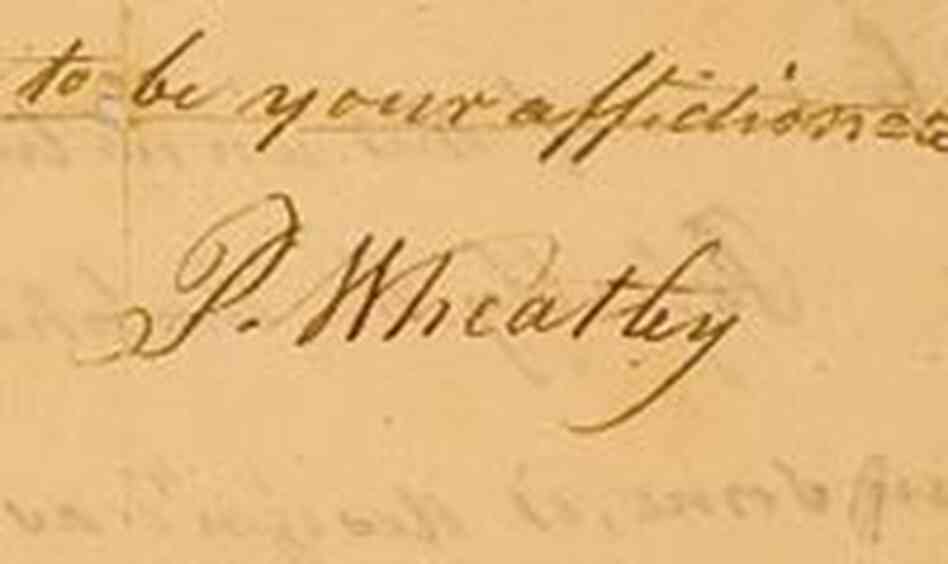 to be your affectiona
P. Wheatley